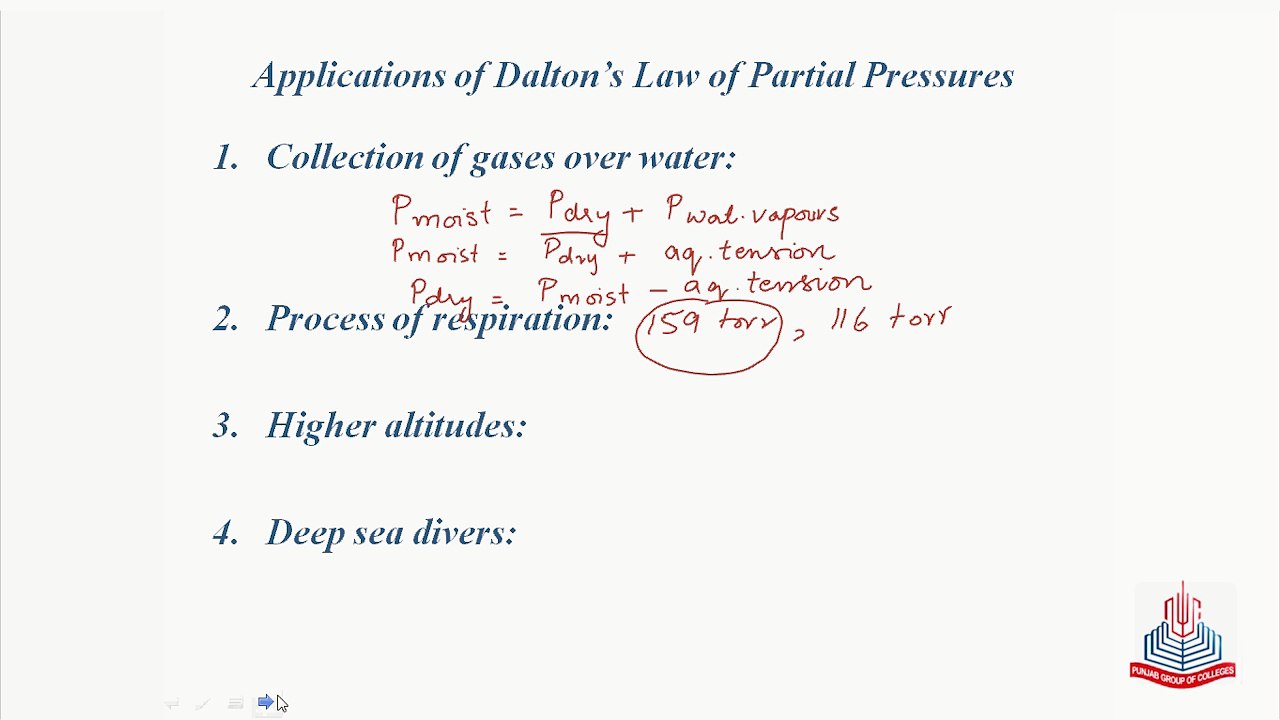 Applications of Dalton's Law of Partial Pressures
1. Collection of gases over water:
Pmoist = Pdry + Pwat. vapours
Pmoist = Pdry + aq. tension
Pdry = Pmoist - aq. tension
2. Process of respiration: 159 torr, 116 torr
3. Higher altitudes:
4. Deep sea divers:
PUNJAB GROUP OF COLLEGES